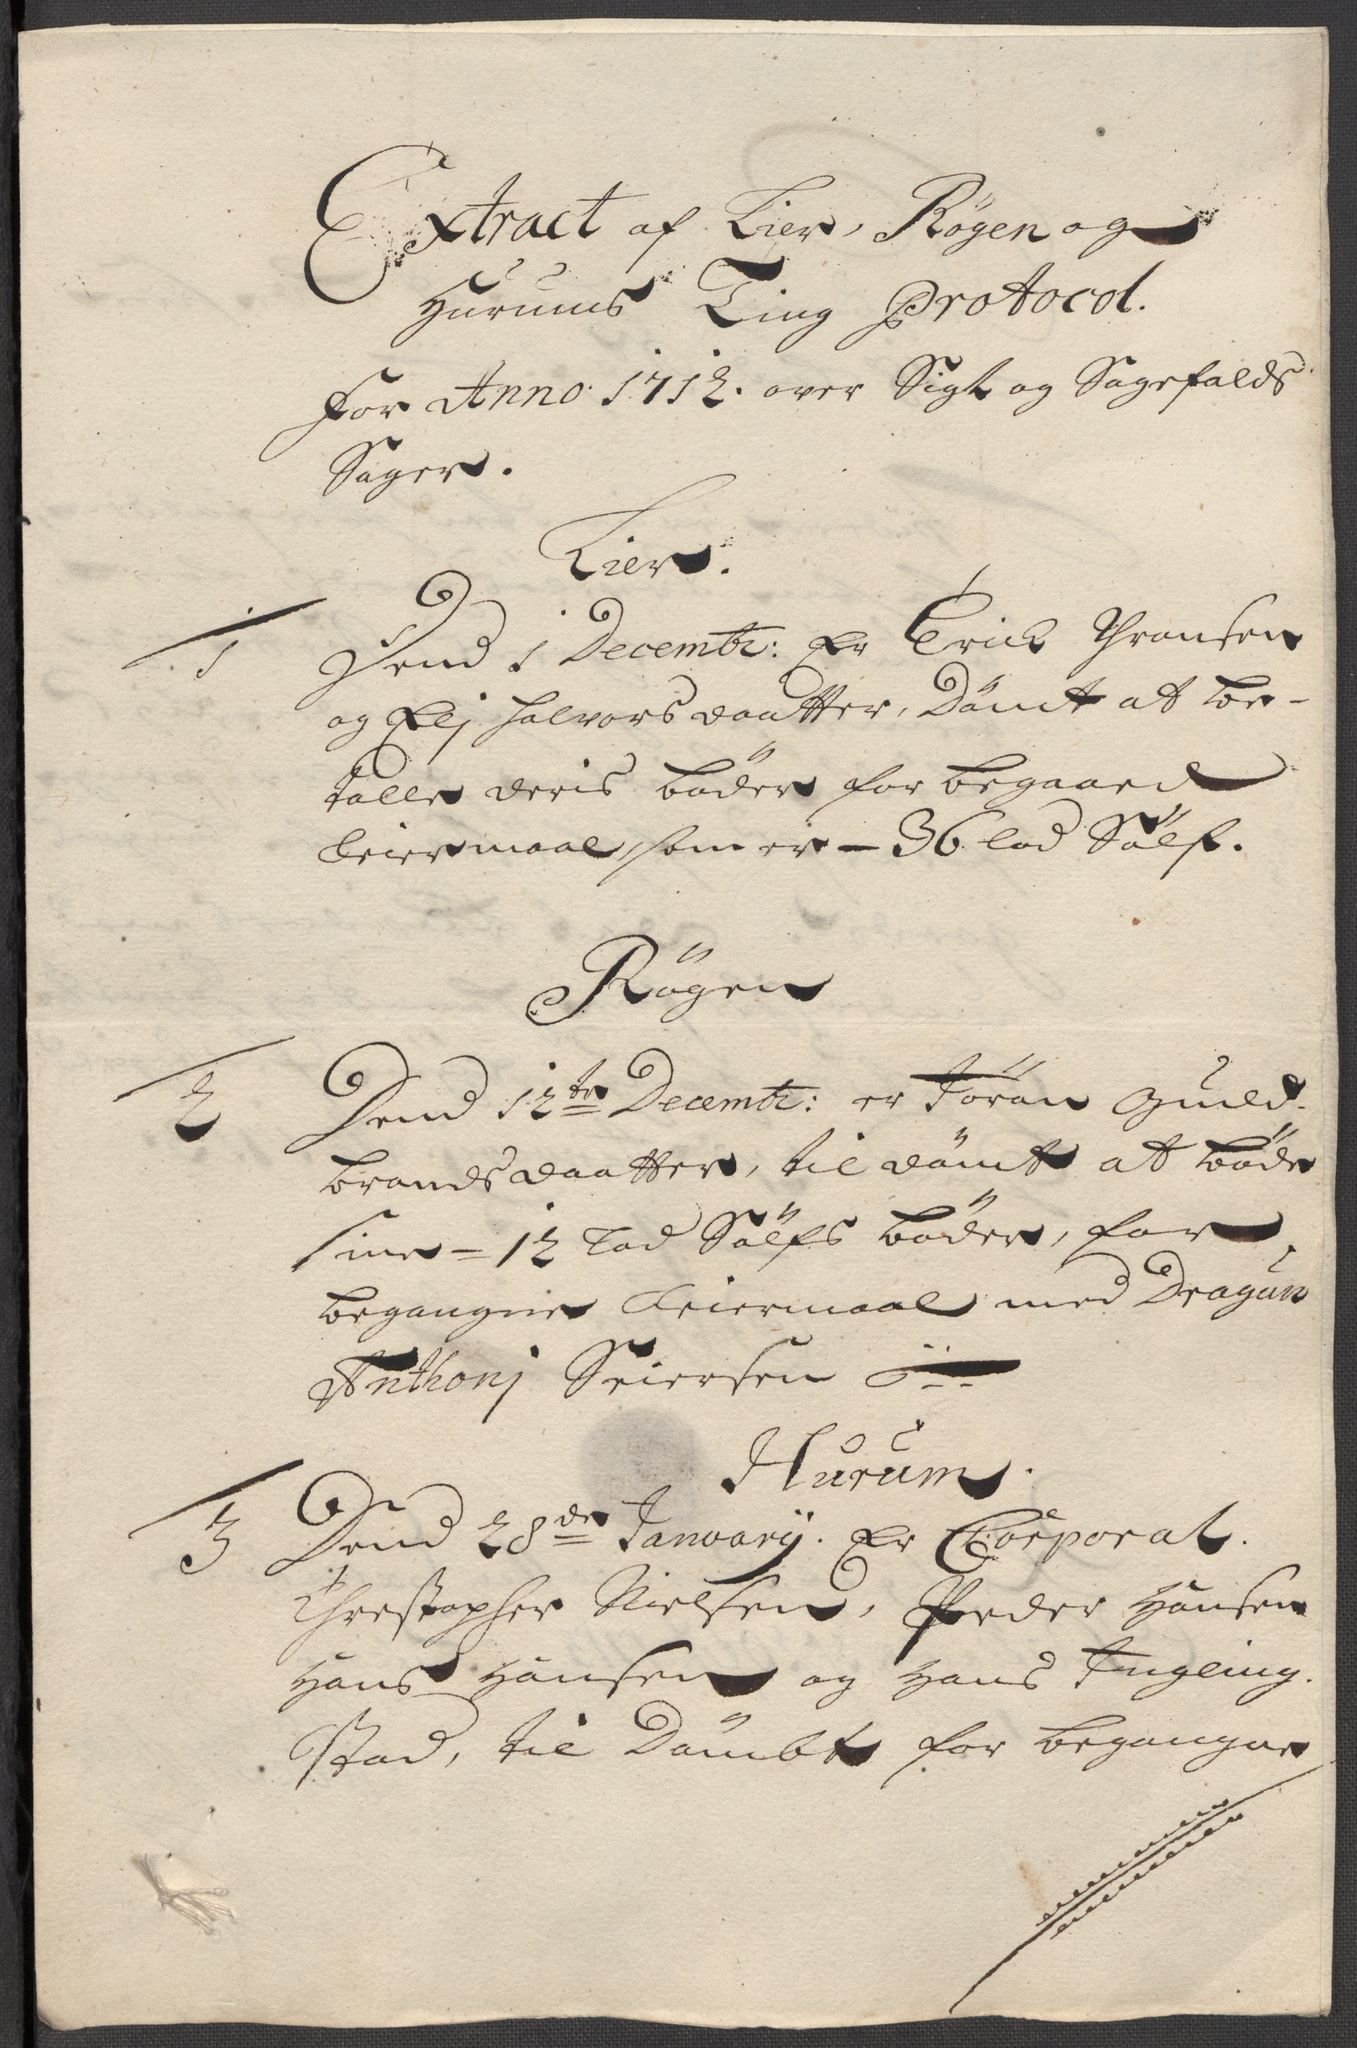 Extract af Lier, Rögen og
Hurums Ting Protocol.
For Anno 1712. over Sigt og Sagefalds
Sager.
Lier.
1 Dend 1 Decembr: Er Erich Thronsen
og Elj Halvorsdaatter, Dömt at be-
talle deris böder for begaaed
Leiermaal, som er - 36 lod Sölf.
Rögen
2 Dend 12te Decembr: er Jörån Guld-
brandsdaatter, til dömt at böde
sine - 12 Lod Sölfs böder, for
begangne Leiermaal med Dragun
Anthonj Seiersen
Hurum.
3 Dend 28de Januarij. Er Corporal.
Christopher Nielsen, Peder Hansen
Hans Hansen og Hans Jngeling-
stad, til Dömbt for begangne